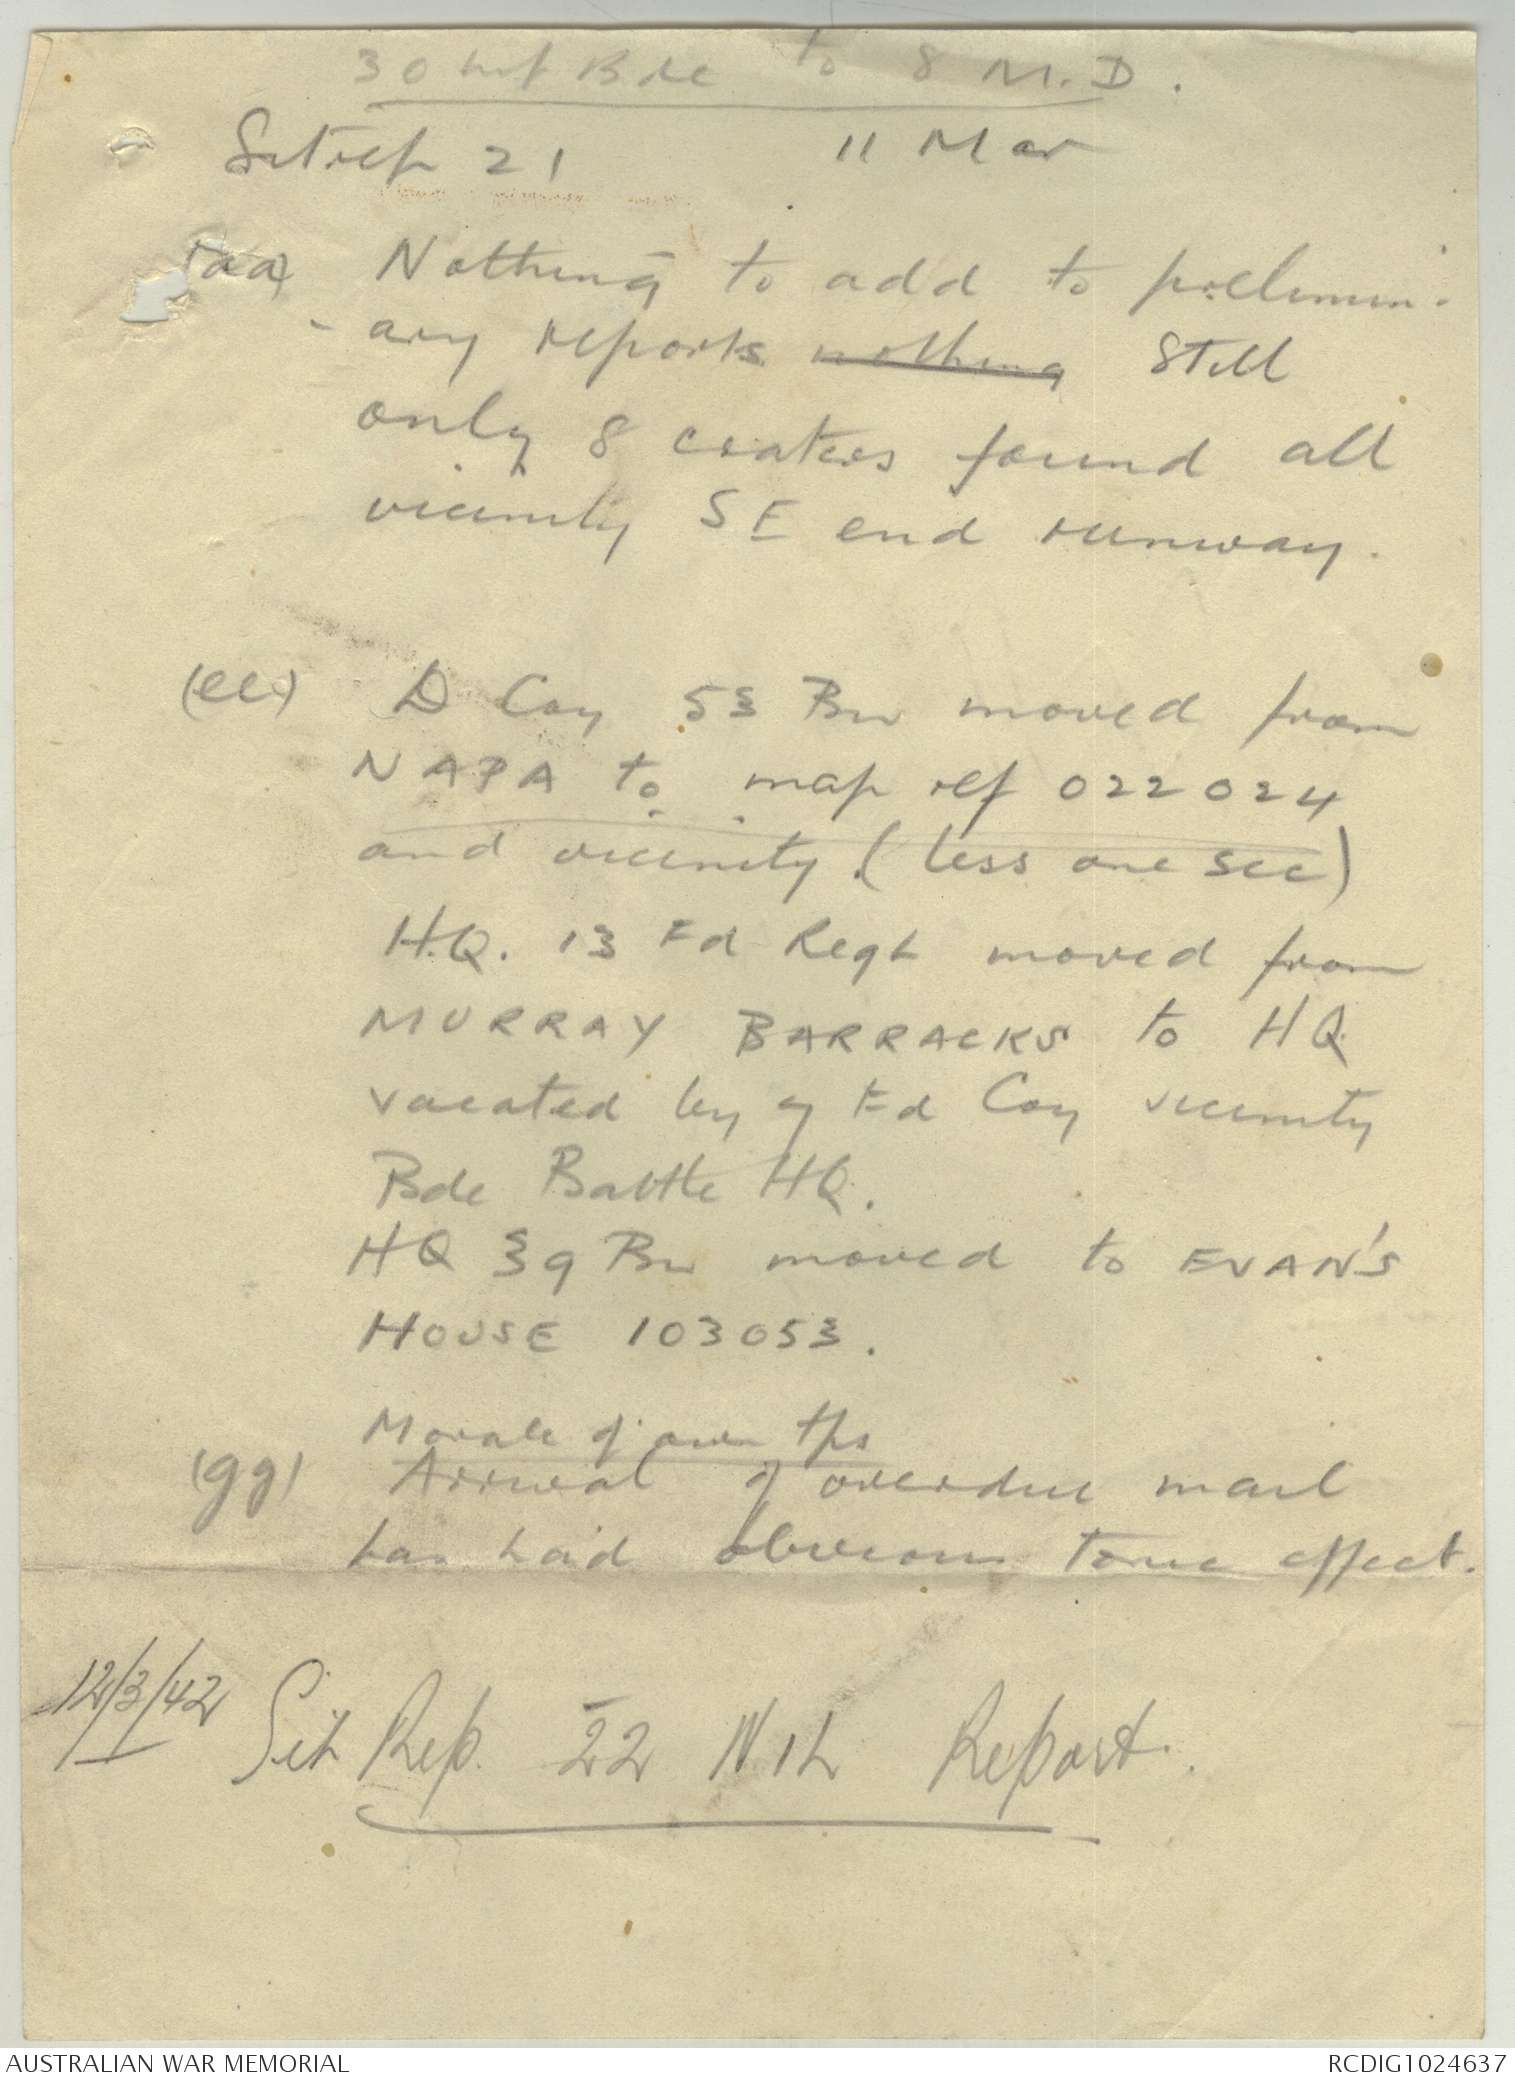 30 Inf Bde to 8 M.D.
Sitrep 21 11 Mar
(aa) Nothing to add to prelimin-
-ary reports nothing Still
only 8 craters found all
vicinity SE end runway.
(ee) D Coy 53 Bn moved from
NAPA to map ref 022024
and vicinity. (less one sec)
H.Q. 13 Fd Regt moved from
MURRAY BARRACKS to HQ
vacated by 7 Fd Coy vicinity
Bde Battle HQ.
HQ 39 Bn moved to EVAN'S
HOUSE 103053.
Morale of own tps
(gg) Arrival of overdue mail
has had obvious tonic effect.
12/3/42 Sit Rep. 22 Nil Report.
AUSTRALIAN WAR MEMORIAL RCDIG1024637